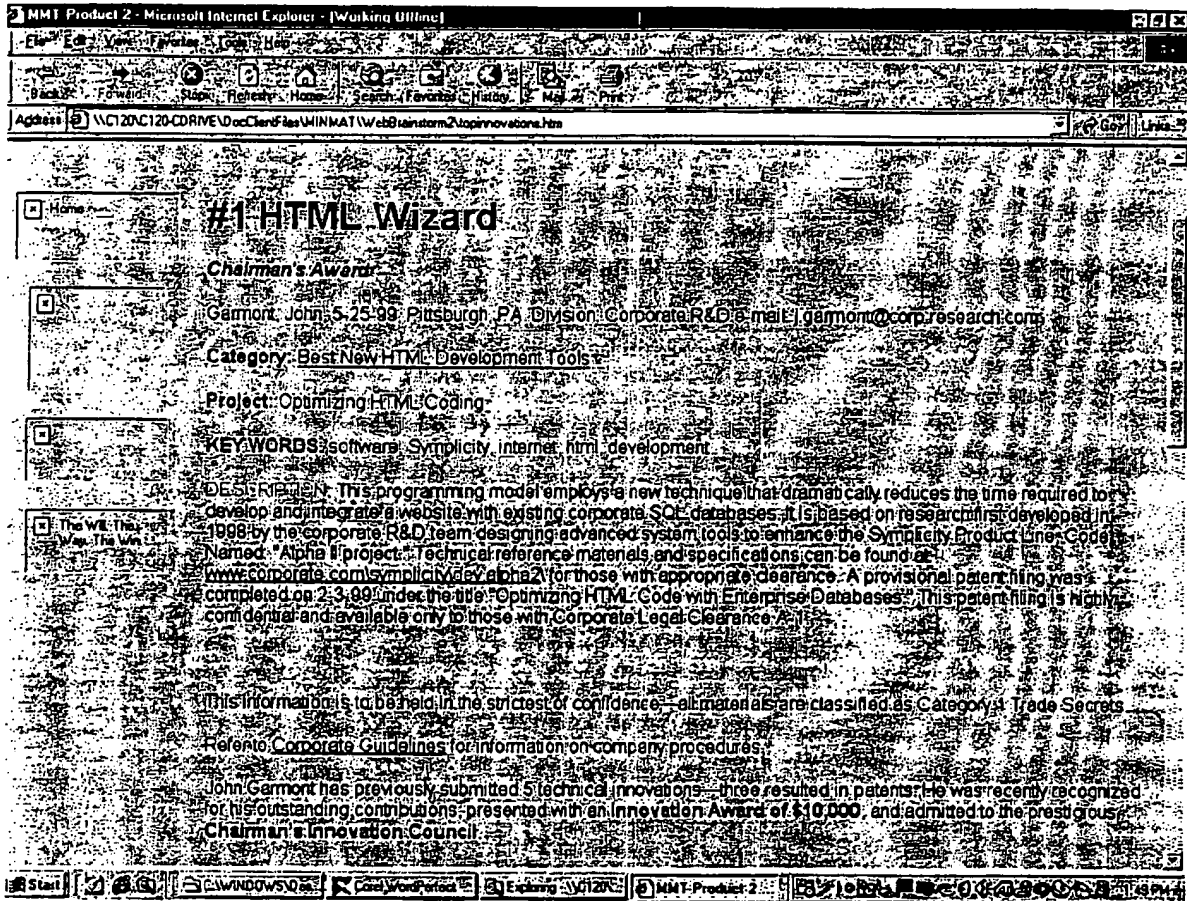 MMT Product 2 - Microsoft Internet Explorer - [Working Offline]
File Edit View Favorites Tools Help
Back Forward Stop Refresh Home Search Favorites History Mail Print
Address \\C120\C120-CDRIVE\DocClientFiles\WINMAT\WebBrainstorm2\topinnovations.htm Go Links »
Home
#1 HTML Wizard
Chairman's Award
Garmont, John 5-25-99 Pittsburgh, PA Division: Corporate R&D e-mail: j.garmont@corp.research.com
Category: Best New HTML Development Tools
Project: Optimizing HTML Coding
KEY WORDS: software, Symplicity, internet, html, development
DESCRIPTION: This programming model employs a new technique that dramatically reduces the time required to
develop and integrate a website with existing corporate SQL databases. It is based on research first developed in
1998 by the corporate R&D team designing advanced system tools to enhance the Symplicity Product Line, Code
Named: "Alpha II project." Technical reference materials and specifications can be found at
www.corporate.com\symplicity\dev.alpha2\ for those with appropriate clearance. A provisional patent filing was
completed on 2-3-99 under the title "Optimizing HTML Code with Enterprise Databases." This patent filing is highly
confidential and available only to those with Corporate Legal Clearance A-1.
The Will, The
Way, The Win
This information is to be held in the strictest of confidence—all materials are classified as Category 1 Trade Secrets
Refer to Corporate Guidelines for information on company procedures.
John Garmont has previously submitted 5 technical innovations—three resulted in patents. He was recently recognized
for his outstanding contributions, presented with an Innovation Award of $10,000, and admitted to the prestigious
Chairman's Innovation Council
Start C:\WINDOWS\ Corel WordPerfect Exploring - \\C120\C MMT Product 2 1:49 PM